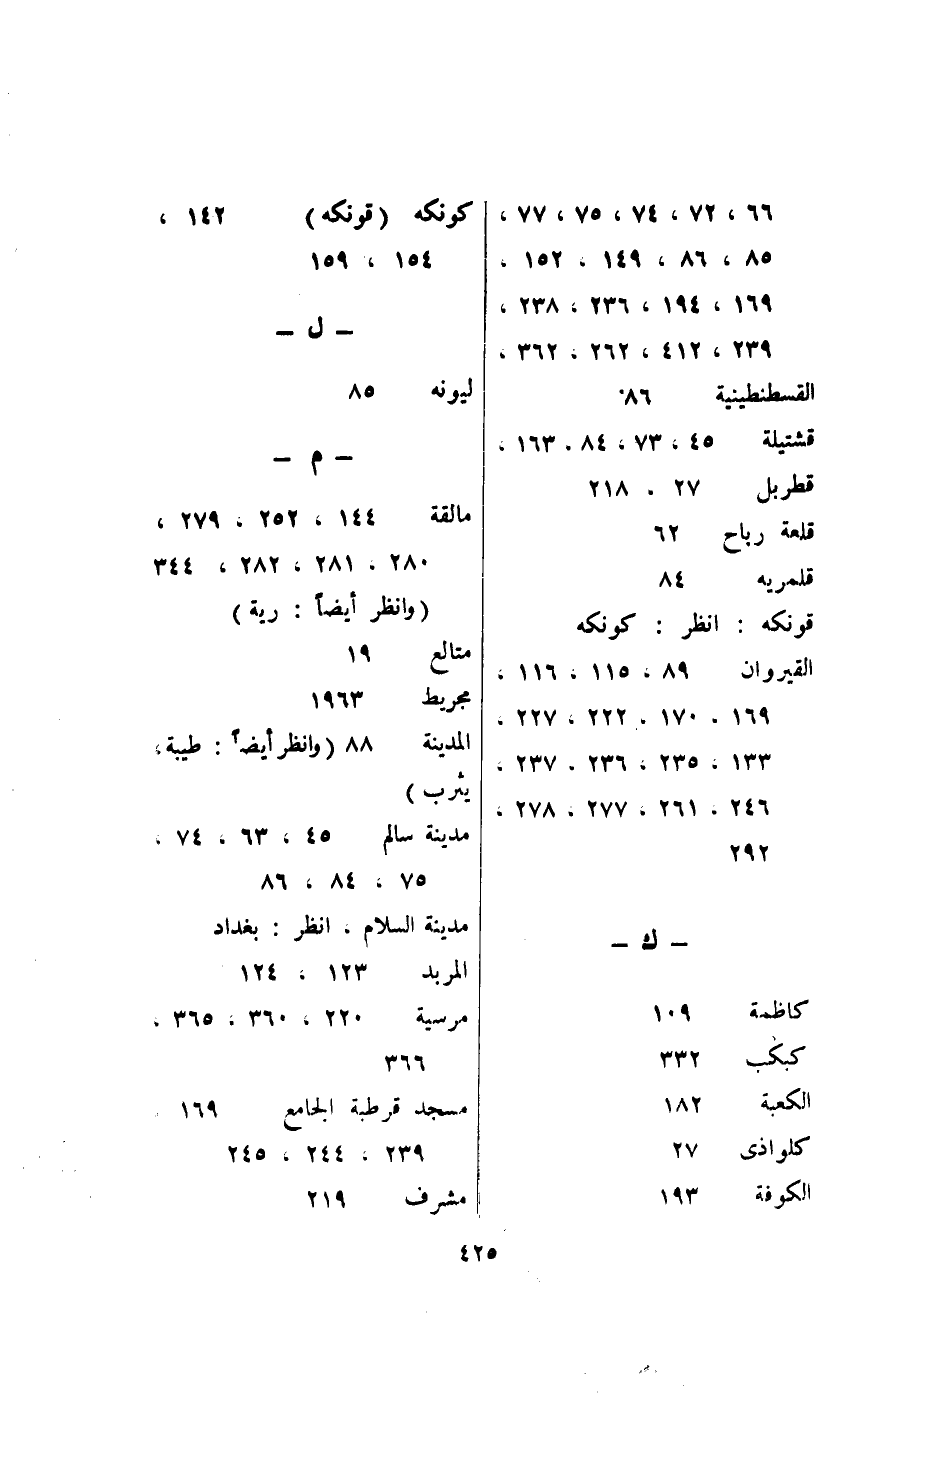 ٦٦ ، ٧٢ ، ٧٤ ، ٧٥ ، ٧٧ ،
٨٥ ، ٨٦ ، ١٤٩ ، ١٥٢ ،
١٦٩ ، ١٩٤ ، ٢٣٦ ، ٢٣٨ ،
٢٣٩ ، ٤١٢ ، ٢٦٢ ، ٣٦٢ ،
القسطنطينية ٨٦
قشتيلة ٤٥ ، ٧٣ ، ٨٤ ، ١٦٣ ،
قطربل ٢٧ ، ٢١٨
قلعة رباح ٦٢
قلمريه ٨٤
قونكه : انظر : كونكه
القيروان ٨٩ ، ١١٥ ، ١١٦ ،
١٦٩ ، ١٧٠ ، ٢٢٢ ، ٢٢٧ ،
١٣٣ ، ٢٣٥ ، ٢٣٦ ، ٢٣٧ ،
٢٤٦ ، ٢٦١ ، ٢٧٧ ، ٢٧٨ ،
٢٩٢
– ك –
كاظمة ١٠٩
كبكب ٣٣٢
الكعبة ١٨٢
كلواذى ٢٧
الكوفة ١٩٣
كونكه (قونكه) ١٤٢ ،
١٥٤ ، ١٥٩
– ل –
ليونه ٨٥
– م –
مالقة ١٤٤ ، ٢٥٢ ، ٢٧٩ ،
٢٨٠ ، ٢٨١ ، ٢٨٢ ، ٣٤٤
(وانظر أيضاً : رية)
متالع ١٩
مجريط ١٩٦٣
المدينة ٨٨ (وانظر أيضاً : طيبة،
يثرب)
مدينة سالم ٤٥ ، ٦٣ ، ٧٤ ،
٧٥ ، ٨٤ ، ٨٦
مدينة السلام ، انظر : بغداد
المربد ١٢٣ ، ١٢٤
مرسية ٢٢٠ ، ٣٦٠ ، ٣٦٥ ،
٣٦٦
مسجد قرطبة الجامع ١٦٩ ،
٢٣٩ ، ٢٤٤ ، ٢٤٥
مشرف ٢١٩
٤٢٥